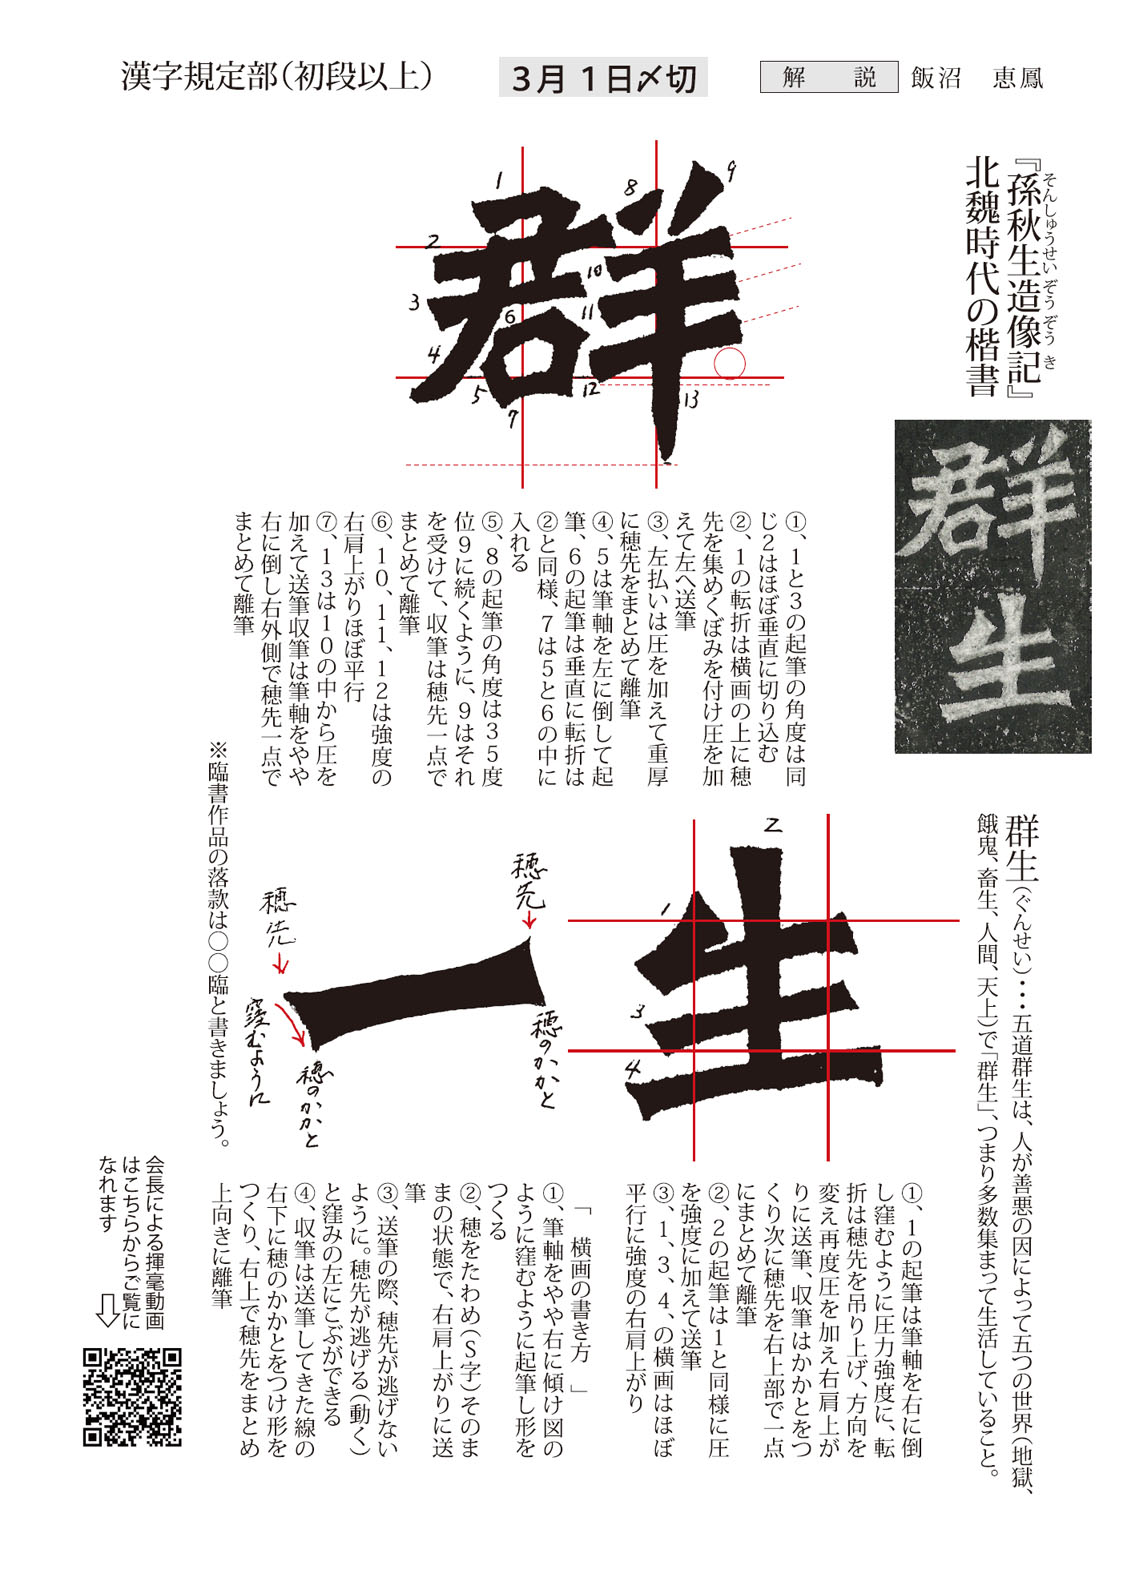 漢字規定部(初段以上)
3月1日〆切
解説 飯沼 恵鳳
『孫秋生造像記』
そんしゅうせいぞうぞうき
北魏時代の楷書
群生
群生(ぐんせい)・・・五道群生は、人が善悪の因によって五つの世界(地獄、
餓鬼、畜生、人間、天上)で「群生」、つまり多数集まって生活していること。
群
1
2
3
4
5
6
7
8
9
10
11
12
13
①、1と3の起筆の角度は同
じ2はほぼ垂直に切り込む
②、1の転折は横画の上に穂
先を集めくぼみを付け圧を加
えて左へ送筆
③、左払いは圧を加えて重厚
に穂先をまとめて離筆
④、5は筆軸を左に倒して起
筆、6の起筆は垂直に転折は
②と同様、7は5と6の中に
入れる
⑤、8の起筆の角度は35度
位9に続くように、9はそれ
を受けて、収筆は穂先一点で
まとめて離筆
⑥、10、11、12は強度の
右肩上がりほぼ平行
⑦、13は10の中から圧を
加えて送筆収筆は筆軸をやや
右に倒し右外側で穂先一点で
まとめて離筆
生
1
2
3
4
①、1の起筆は筆軸を右に倒
し窪むように圧力強度に、転
折は穂先を吊り上げ、方向を
変え再度圧を加え右肩上が
りに送筆、収筆はかかとをつ
くり次に穂先を右上部で一点
にまとめて離筆
②、2の起筆は1と同様に圧
を強度に加えて送筆
③、1、3、4、の横画はほぼ
平行に強度の右肩上がり
一
穂先
穂のかかと
穂先
窪むように
穂のかかと
「 横画の書き方 」
①、筆軸をやや右に傾け図の
ように窪むように起筆し形を
つくる
②、穂をたわめ(S字)そのま
まの状態で、右肩上がりに送
筆
③、送筆の際、穂先が逃げない
ように。穂先が逃げる(動く)
と窪みの左にこぶができる
④、収筆は送筆してきた線の
右下に穂のかかとをつけ形を
つくり、右上で穂先をまとめ
上向きに離筆
※臨書作品の落款は〇〇臨と書きましょう。
会長による揮毫動画
はこちらからご覧に
なれます